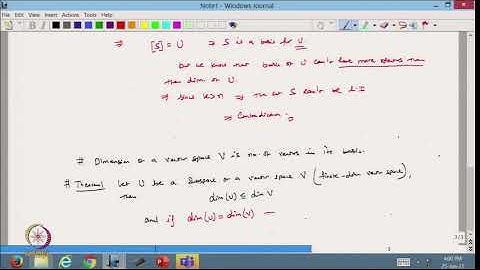 Note1 - Windows Journal
⇒ [S] = U ⇒ S is a basis for U
but we know that basis of U can't have more vectors than
than dim. of U.
⇒ Since k>n ⇒ S can't be L.I
⇒ Contradiction.
# Dimension of a vector space V is no. of vectors in its basis.
# Theorem: Let U be a Subspace of a vector space V (finite-dim vector space),
then dim(U) ≤ dim V
and if dim(U) = dim(V)